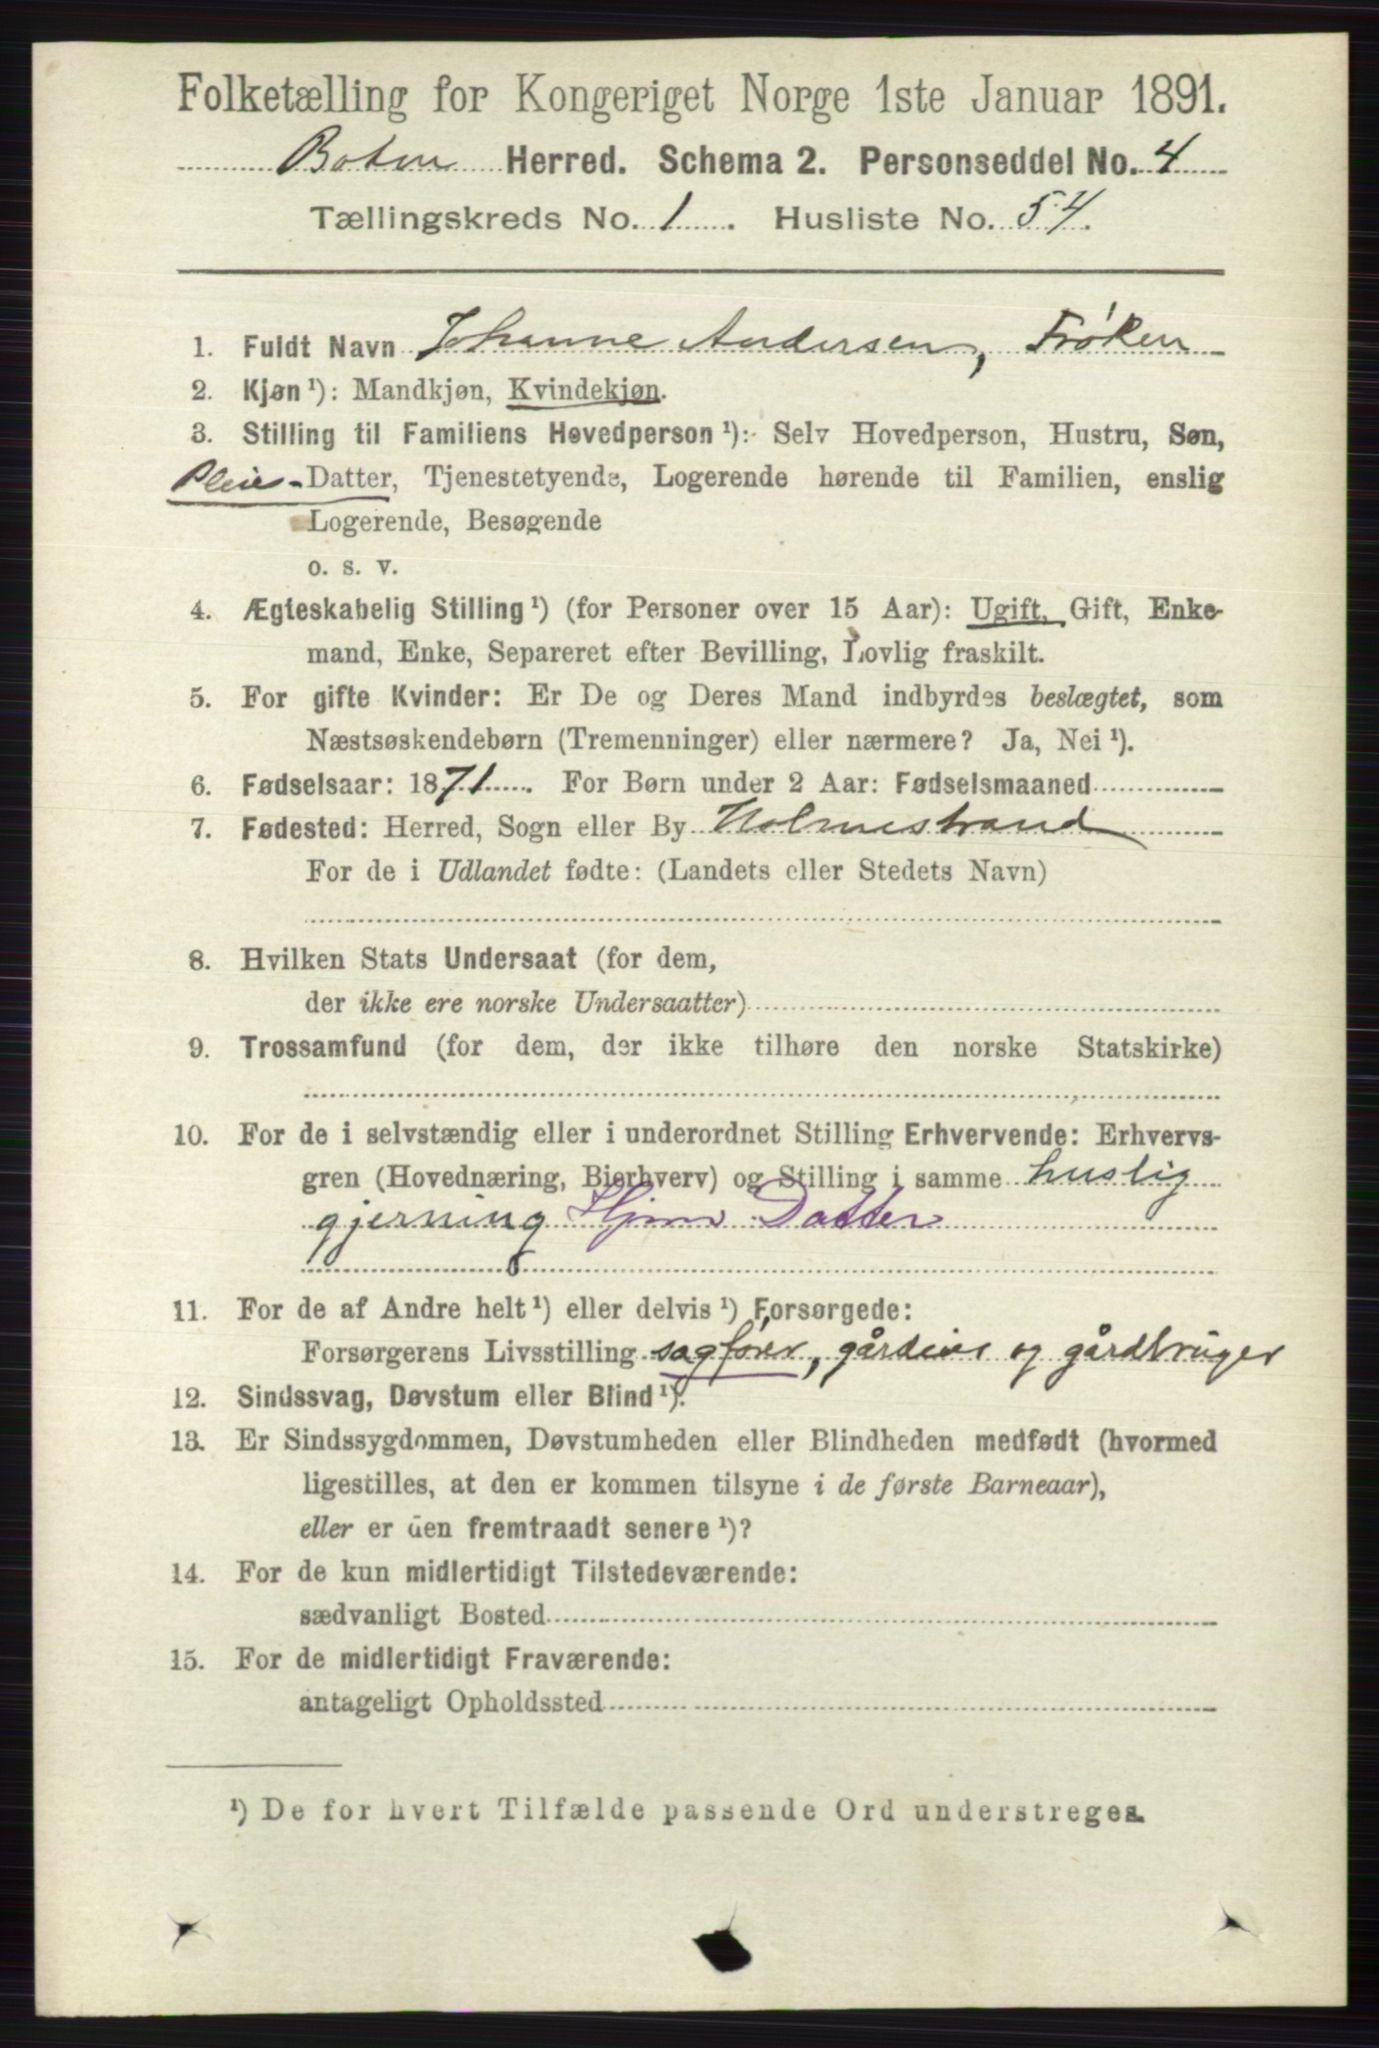 Folketælling for Kongeriget Norge 1ste Januar 1891.
Botne Herred. Schema 2. Personseddel No. 4
Tællingskreds No. 1. Husliste No. 54.
1. Fuldt Navn Johanne Andersen, Frøken
2. Kjøn ¹): Mandkjøn, Kvindekjøn.
3. Stilling til Familiens Hovedperson ¹): Selv Hovedperson, Hustru, Søn,
Pleie- Datter, Tjenestetyende, Logerende hørende til Familien, enslig
Logerende, Besøgende
o. s. v.
4. Ægteskabelig Stilling ¹) (for Personer over 15 Aar): Ugift, Gift, Enke-
mand, Enke, Separeret efter Bevilling, Lovlig fraskilt.
5. For gifte Kvinder: Er De og Deres Mand indbyrdes beslægtet, som
Næstsøskendebørn (Tremenninger) eller nærmere? Ja, Nei ¹).
6. Fødselsaar: 1871. For Børn under 2 Aar: Fødselsmaaned
7. Fødested: Herred, Sogn eller By Holmestrand
For de i Udlandet fødte: (Landets eller Stedets Navn)
8. Hvilken Stats Undersaat (for dem,
der ikke ere norske Undersaatter)
9. Trossamfund (for dem, der ikke tilhøre den norske Statskirke)
10. For de i selvstændig eller i underordnet Stilling Erhvervende: Erhvervs-
gren (Hovednæring, Bierhverv) og Stilling i samme huslig
gjerning Hjmv Datter
11. For de af Andre helt ¹) eller delvis ¹) Forsørgede:
Forsørgerens Livsstilling sagfører, gårdeier og gårdbruger
12. Sindssvag, Døvstum eller Blind ¹).
13. Er Sindssygdommen, Døvstumheden eller Blindheden medfødt (hvormed
ligestilles, at den er kommen tilsyne i de første Barneaar),
eller er den fremtraadt senere ¹)?
14. For de kun midlertidigt Tilstedeværende:
sædvanligt Bosted
15. For de midlertidigt Fraværende:
antageligt Opholdssted
¹) De for hvert Tilfælde passende Ord understreges.